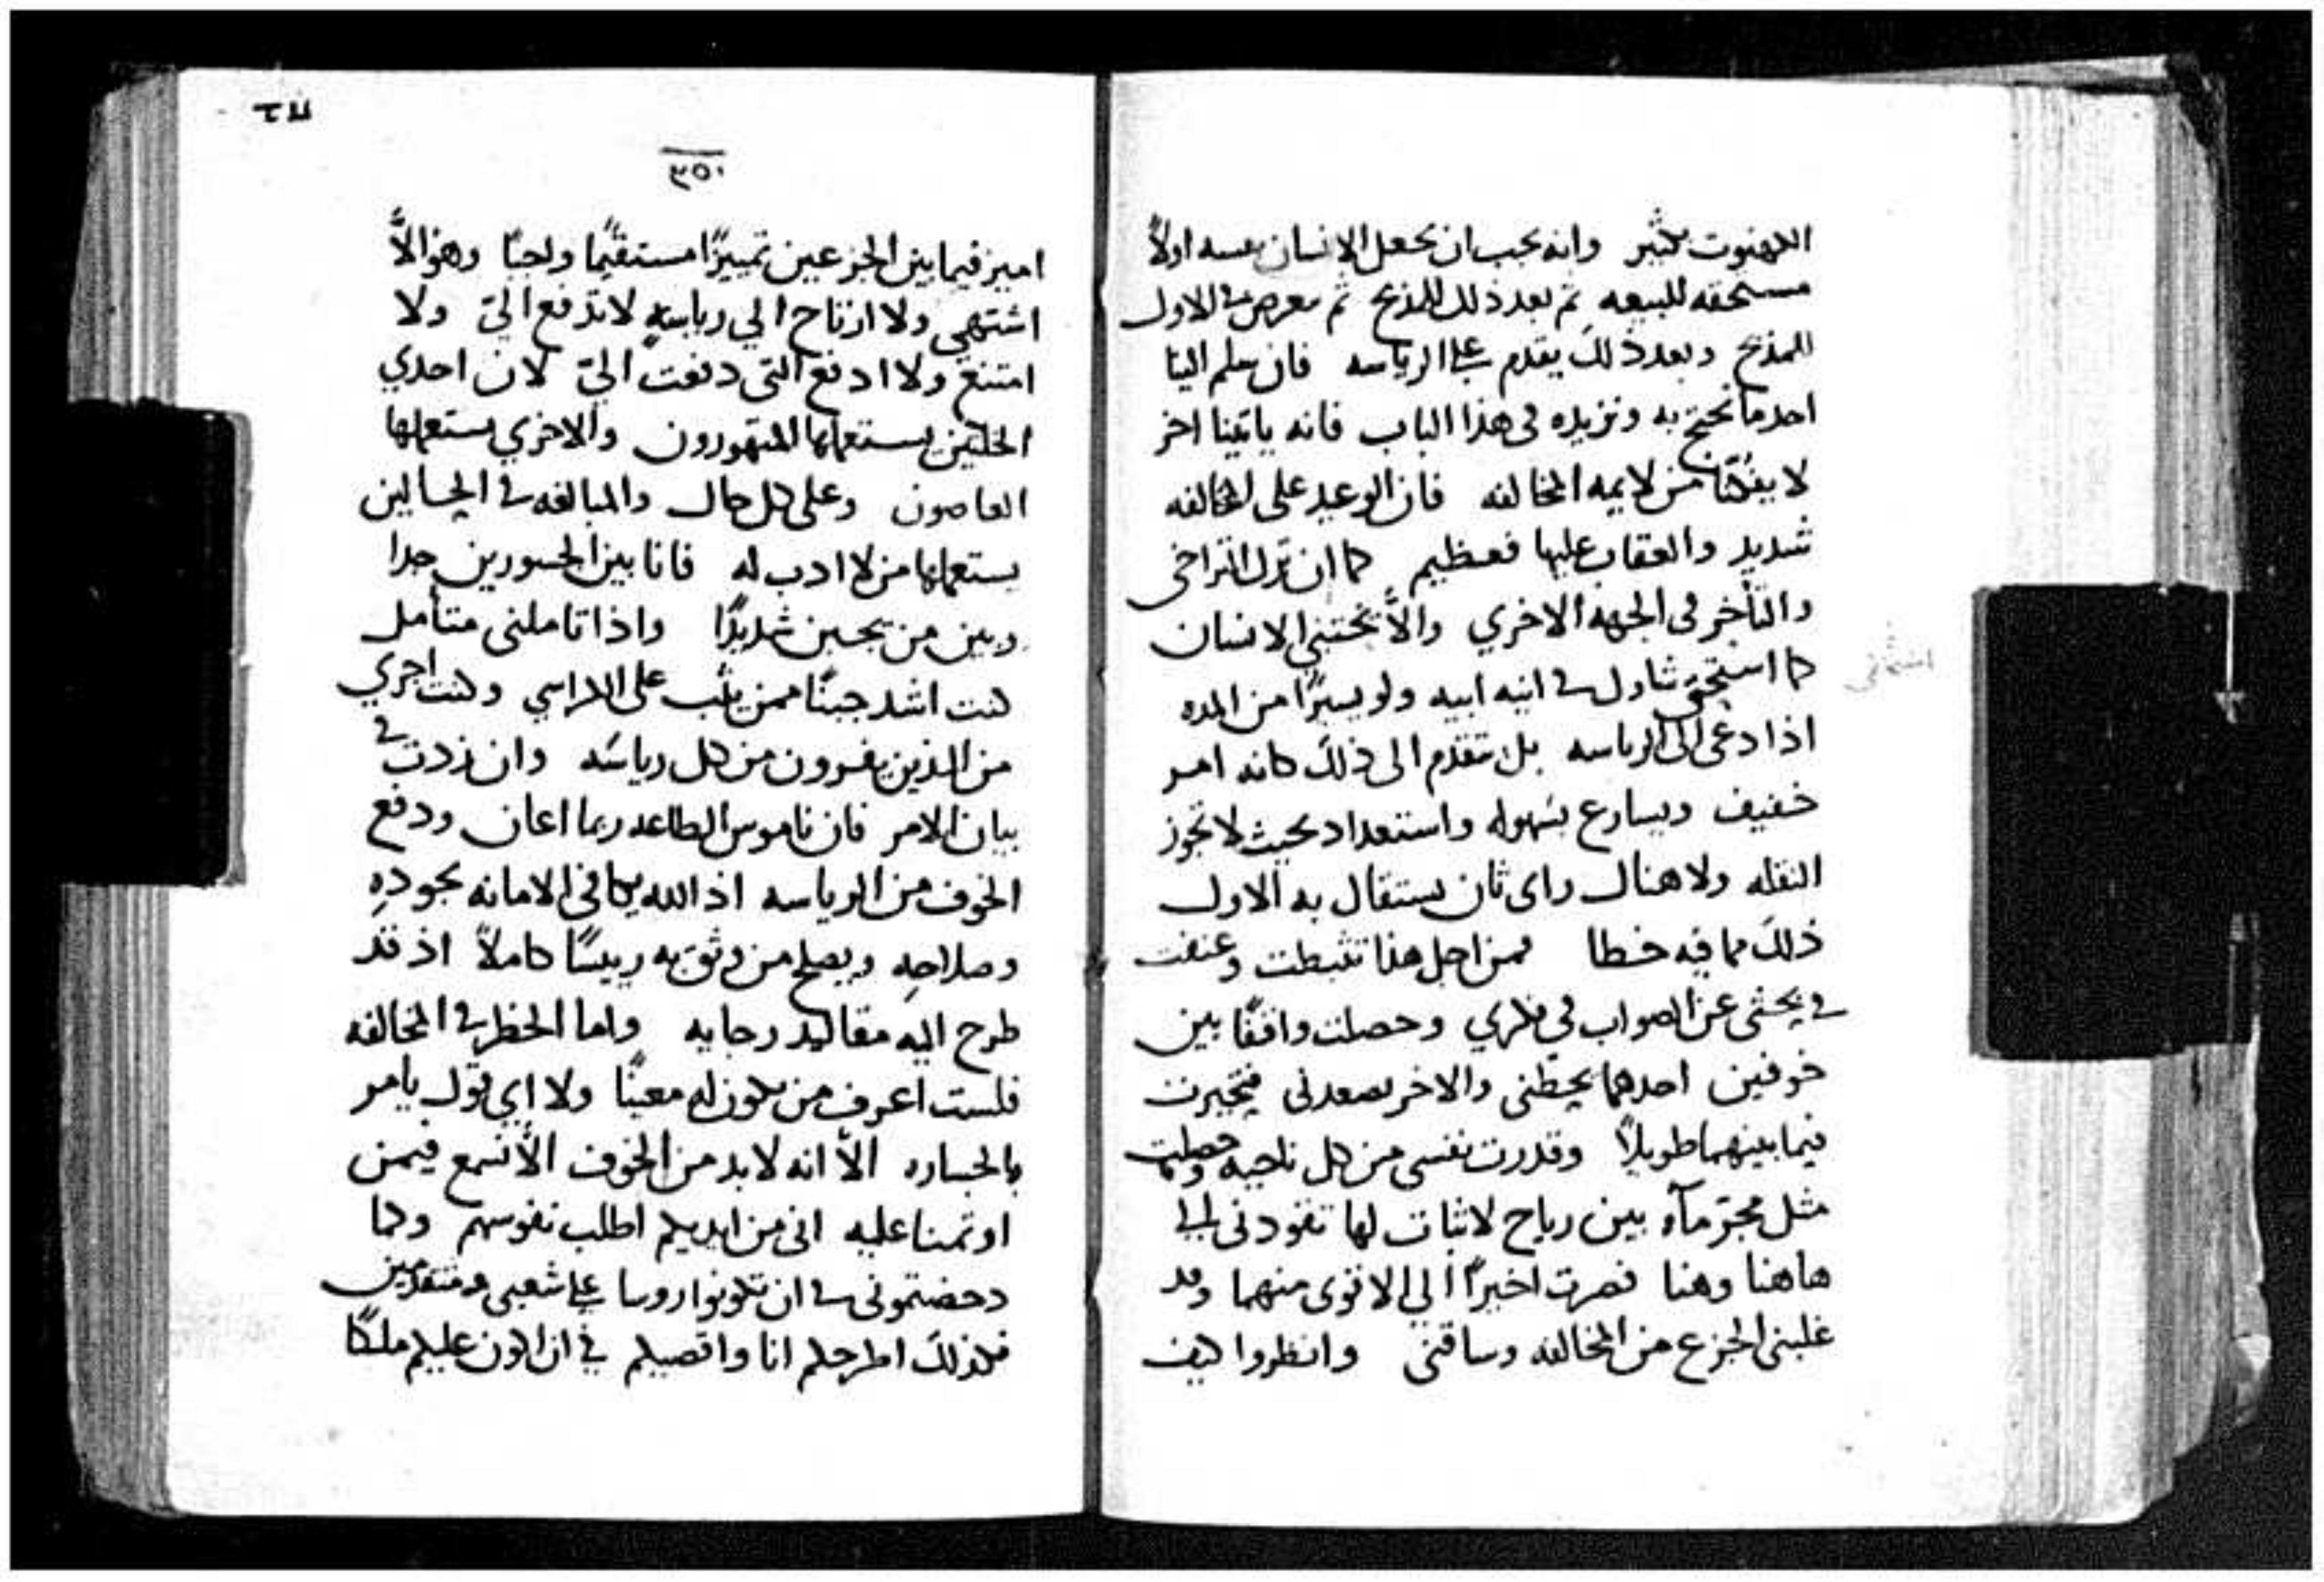 الكهنوت كثير وانه يجب ان يجعل الانسان نفسه اولاً
مستحقه للبيعه ثم بعد ذلك للمذبح ثم في الاول
للمذبح وبعد ذلك يقدم على الرياسه فان سلم الينا
احد ما نحتج به ونزيده في هذا الباب فانه ياتينا اخر
لا من لايمه المخالفه فان الوعيد على المخالفه
شديد والعقاب عليها فعظيم كما ان ترك التراخي
والتأخر في الجهه الاخري والاَّ يختبي الانسان
كما استخفى شاول في انيه ابيه ولو يسيرًا من المده
اذا دعى الى الرياسه بل يتقدم الى ذلك كانه امر
خفيف ويسارع بسهوله واستعداد بحيث لا تجوز
النقله ولا هناك راى ثان يستقال به الاول
ذلك مما فيه خطا فمن اجل هذا تثبطت وعنفت
في بحثى عن الصواب في فكري وحصلت واقفًا بين
خوفين احدهما يحطني والاخر يصعدني فتحيرت
فيما بينهما طويلاً وقدرت نفسى من كل ناحيه وحصلت
مثل مجرّ مآء بين رياح لا ثبات لها تقودني الى
هاهنا وهنا فصرت اخيرًا الي الاقوى منهما وقد
غلبنى الجزع من المخالفه وساقني وانظروا كيف
٣٥٠
اميز فيما بين الجزعين تمييزًا مستقيمًا واجبًا وهو الاَّ
اشتهي ولا ارتاح الي رياسهٍ لا تدفع اليّ ولا
امتنع ولا ادفع التى دفعت اليّ لان احدي
الخلتين يستعملها المتهورون والاخري يستعملها
العاصون وعلى كل حال والمبالغه في الحالين
يستعملها من لا ادب له فانا بين الجسورين جدا
وبين من يجبن شديدًا واذا تاملنى متأمل
كنت اشد جبنًا ممن يثب على الكراسي وكنت اجري
من الذين يفرون من كل رياسَه وان زدت في
بيان الامر فان ناموس الطاعه ربما اعان ودفع
الخوف من الرياسه اذ الله يكافي الامانه بجودهِ
وصلاحهِ ويصلح من وثق به رييسًا كاملاً اذ قد
طرح اليه مقاليد رجايه واما الحظر في المخالفه
فلست اعرف من يكون له معينًا ولا اي قول يامر
بالجساره الاَّ انه لابد من الخوف الاَّ نسمع فيمن
اوتمنا عليه اني من ايديكم اطلب نفوسهم وكما
دحضتمونى في ان تكونوا روسا على شعبي ومتقدمين
فكذلك اطرحكم انا واقصيكم في ان اكون عليكم ملكًا